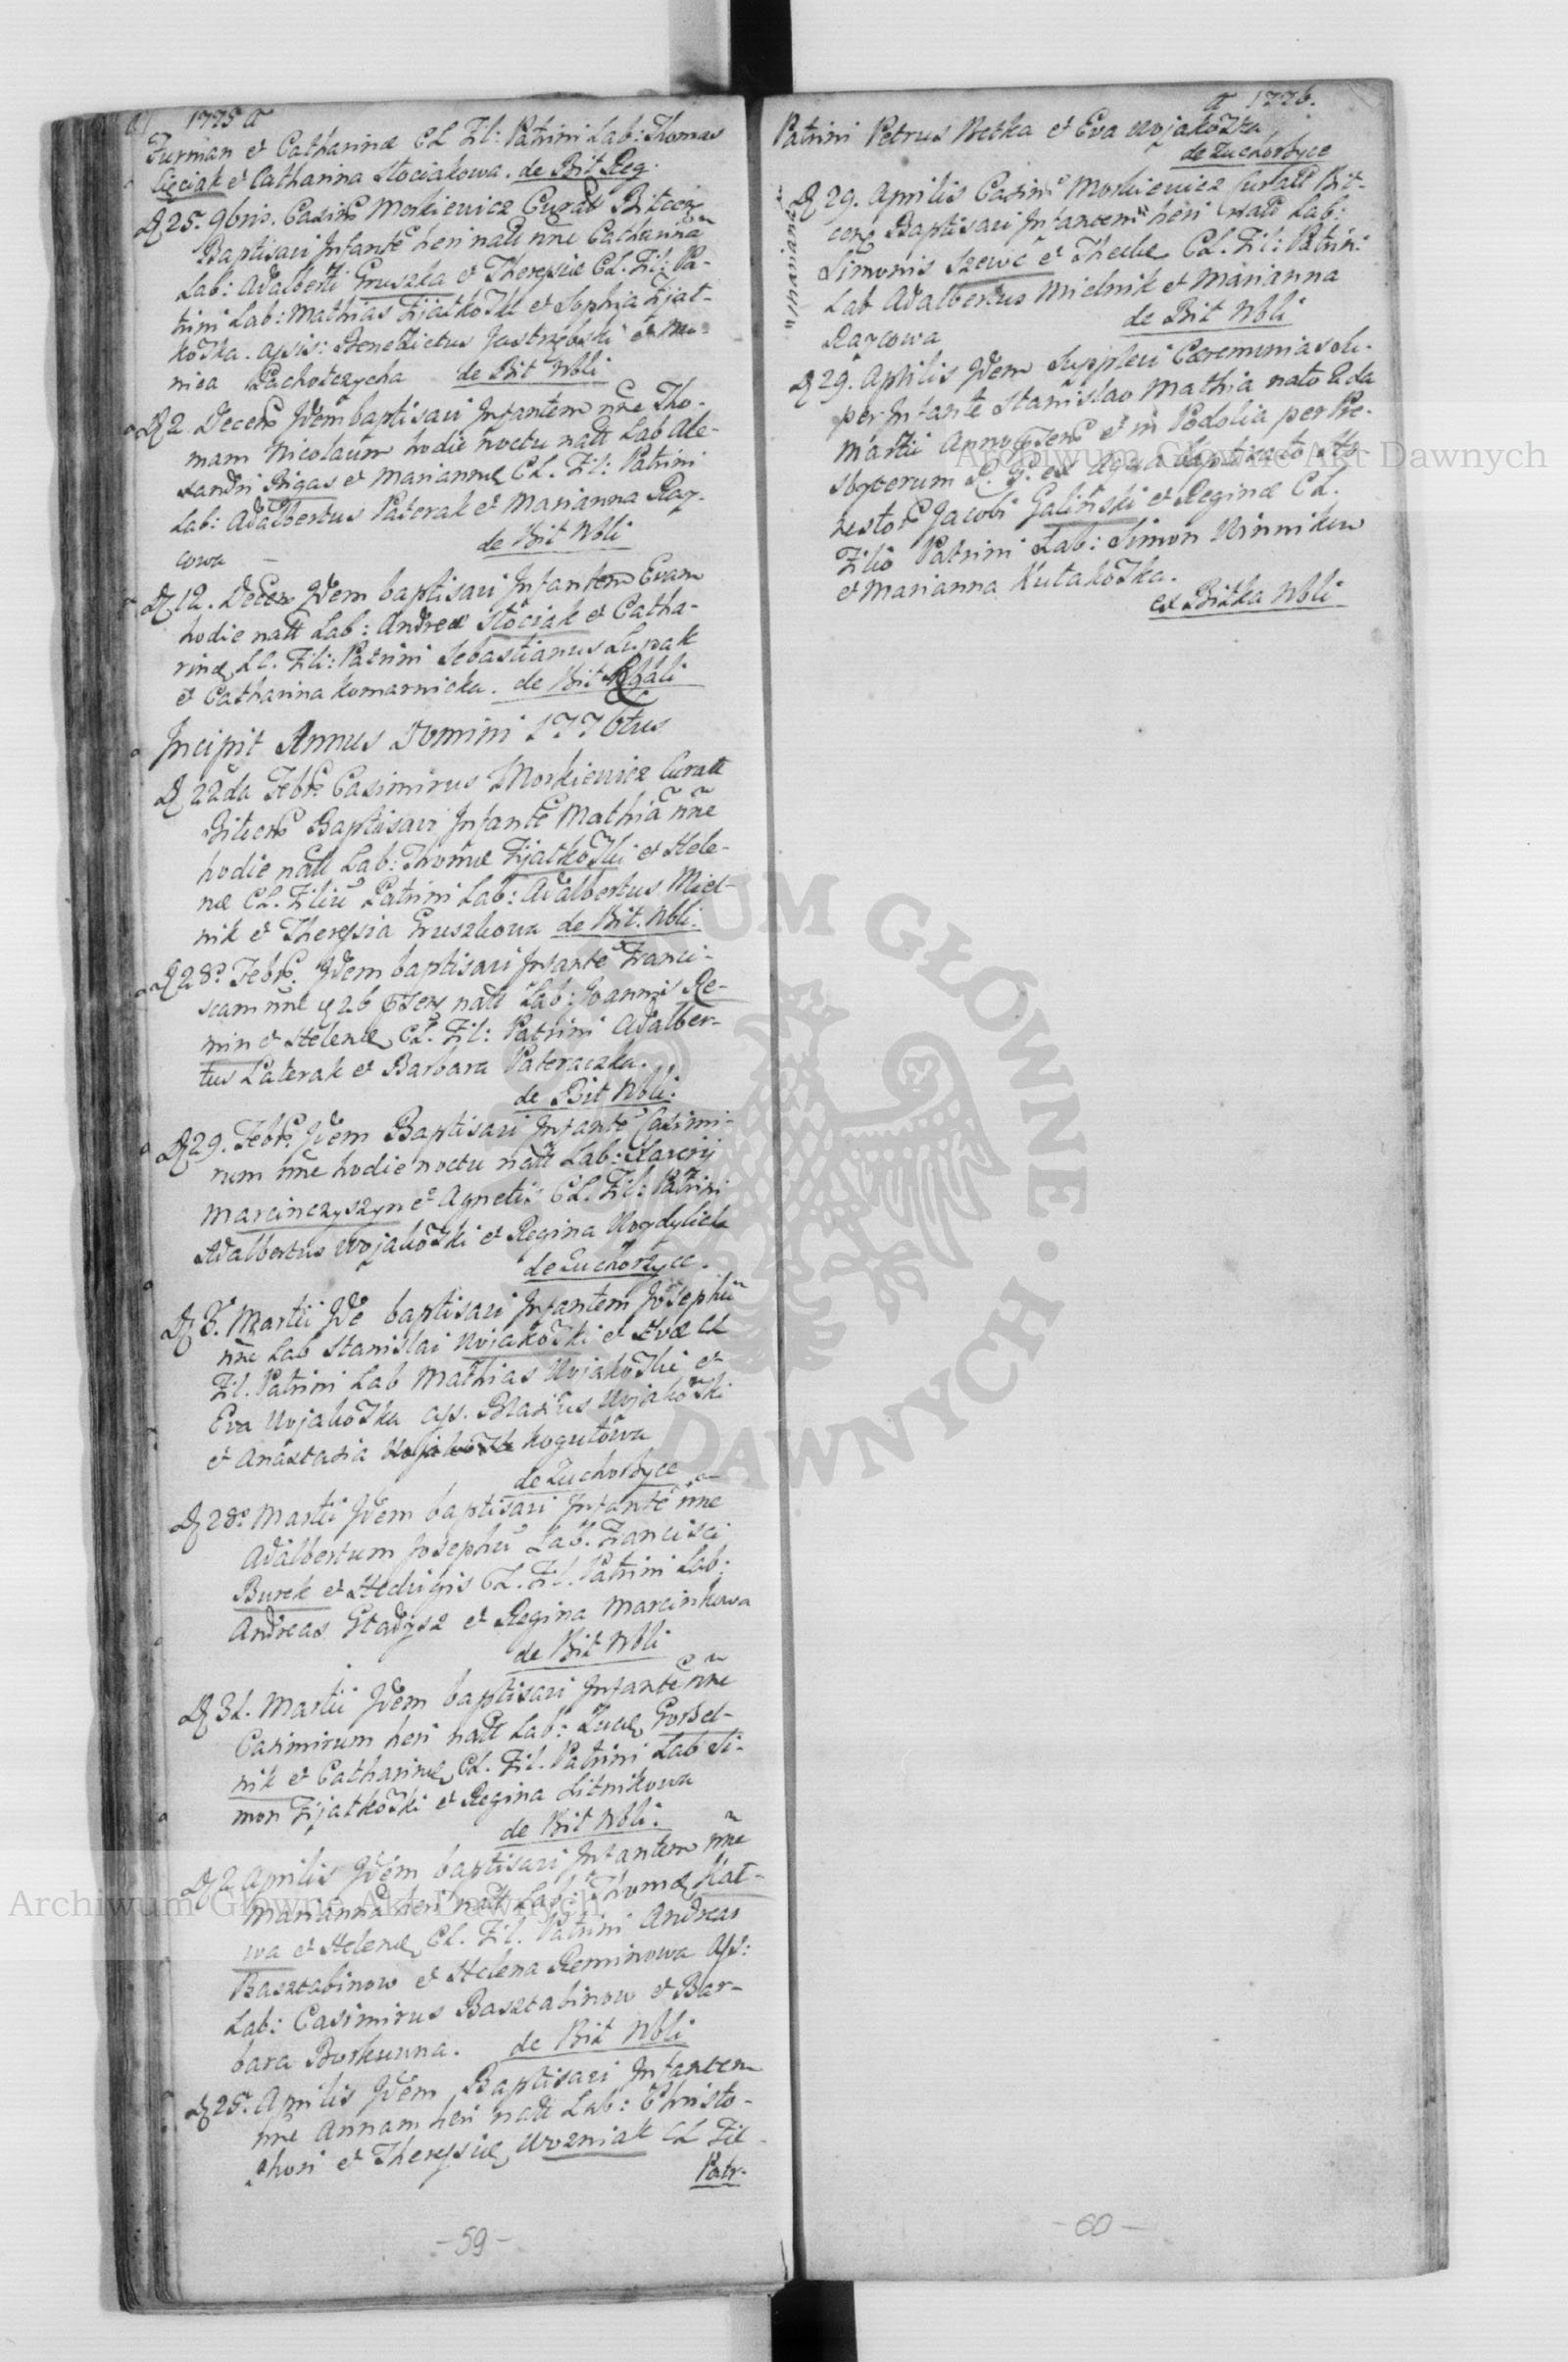 1775 a
Furman et Catharinæ CL Fil: Patrini Lab: Thomas
Cięciak et Catharina Stociakowa. de Bit Reg.
D 25. 9bris. Casimir Morkiewicz Curat Bitcen
Baptisavi Infante heri nati nne Catharina
Lab: Adalberti Gruszka et Theresiæ CL. Fil: Pa-
trini Lab: Mathias Fijatkowski et Sophia Fijat-
kowska. assis: Benedictus Jastrzębski et Mo-
nica Pachotczycha de Bit Nbli
D 2. Decem Idem baptisavi Infantem nne Tho-
mam Nicolaum hodie noctu natt Lab Ale-
xandri Bigas et Mariannæ CL. Fil: Patrini
Lab: Adalbertus Paterak et Marianna Ray-
cowa de Bit Nbli
D 12. Decem Idem baptisavi Infantem Evam
hodie natt Lab: Andreæ Stociak et Catha-
rinæ LC. Fili: Patrini Sebastianus Lupak
et Catharina Komarnicka. de Bit Rgali
Incipit Annus Domini 1776tus
D 22da Febr. Casimirus Morkiewicz Curatt
Bitcens Baptisavi Infante Mathia nne
hodie natt Lab: Thomæ Fijatkowski et Hele-
næ CL. Filiu Patrini Lab: Adalbertus Miel-
nik et Theresia Gruszkowa de Bit. Nbli.
D 28. Febr. Idem baptisavi Infante Franci-
scam nne 26 natt Lab: Joannis Re-
min et Helenæ CL. Fil: Patrini Adalber-
tus Paterak et Barbara Pateraczka.
de Bit Nbli:
D 29. Febr. Idem Baptisavi Infante Casimi-
rum nne hodie noctu natt Lab:
Marcinczyszyn et Agnetis CL. Fil: Patrini
Adalbertus Wojakowski et Regina
de Zuchorzyce.
D 3. Martii Ide baptisavi Infantem Josephu
nne Lab Stanislai Wojakowski et Evæ CL
Fil. Patrini Lab Mathias Wojakowski et
Eva Wojakowska ass. Blasius Wojakowski
et Anastasia Kogutowa
de Zuchorzyce
D 28. Martii Idem baptisavi Infante nne
Adalbertum Josephu Lab. Francisci
Burek et Hedvigis CL. Fil. Patrini Lab.
Andreas Gtadysz et Regina Marcinkowa
de Bit Nbli
D 31. Martii Idem baptisavi Infante nne
Casimirum heri natt Lab: Lucæ Gorzel-
nik et Catharinæ CL. Fil. Patrini Lab Si-
mon Fijatkowski et Regina Litnikowa
de Bit Nbli.
D 2 Aprilis Idem baptisavi Infantem nne
Marianna heri natt Lab: Thomæ Kat-
wa et Helenæ CL. Fil. Patrini Andreas
Basztabinow et Helena Reminowa Ass:
Lab: Casimirus Basztabinow et Bar-
bara Borkunna. de Bit Nbli
D 25. Aprilis Idem Baptisavi Infantem
nne Annam heri natt Lab: Christo-
phori et Theresiæ Wozniak CL Fil
Patr.
-59-
a 1776.
Patrini Petrus Betka et Eva Wojakowska
de Zuchorzyce
D 29. Aprilis Casimir Morkiewicz Curatt Bit-
cens Baptisavi Infantem heri natt Lab:
Simonis Szewc et Theclæ CL. Fil: Patrin:
Lab Adalbertus Mielnik et Marianna
Raycowa de Bit Nbli
"Marianna"
D 29. Aprilis Idem Supplevi Cæremonias su-
per Infante Stanislao Mathia nato 2da
Martii Anno et in Podolia per Pre-
sbyterum ex Aqua baptizato Ho-
nestor Jacobi Galiński et Reginæ CL.
Filio Patrini Lab: Simon Winnikow
et Marianna Kutakowska.
ex Bitka Nbli
-60-
Archiwum Główne Akt Dawnych
Archiwum Główne Akt Dawnych
ARCHIWUM GŁÓWNE AKT DAWNYCH